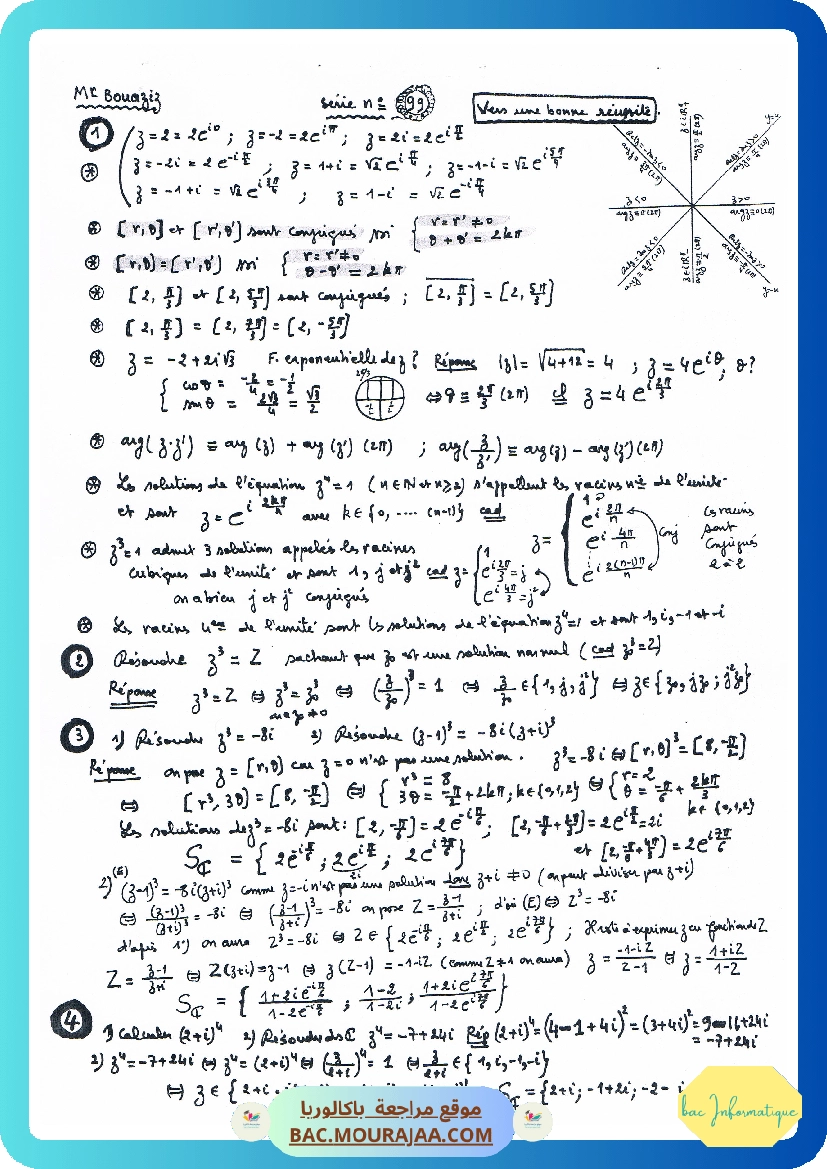 Mr Bouaziz
Série n° 99
Vers une bonne réussite.
1
z = 2 = 2e^{i0} ; z = -2 = 2e^{iπ} ; z = 2i = 2e^{iπ/2}
z = -2i = 2e^{-iπ/2} ; z = 1+i = √2 e^{iπ/4} ; z = -1-i = √2 e^{i5π/4}
z = -1+i = √2 e^{i3π/4} ; z = 1-i = √2 e^{-iπ/4}
z<0
arg z ≡ π (2π)
z>0
arg z ≡ 0 (2π)
[r,θ] et [r',θ'] sont conjugués ssi { r = r' ≠ 0
θ + θ' = 2kπ
[r,θ] = [r',θ'] ssi { r = r' ≠ 0
θ - θ' = 2kπ
[2, π/3] et [2, 5π/3] sont conjugués ; \overline{[2, π/3]} = [2, 5π/3]
[2, π/3] = [2, 7π/3] = [2, -5π/3]
z = -2 + 2i√3 F. exponentielle de z ? Réponse |z| = √(4+12) = 4 ; z = 4e^{iθ}, θ?
{ cos θ = -2/4 = -1/2
sin θ = 2√3/4 = √3/2
⇔ θ ≡ 2π/3 (2π) cl z = 4 e^{i2π/3}
arg(z·z') ≡ arg(z) + arg(z') (2π) ; arg(z/z') ≡ arg(z) - arg(z') (2π)
Les solutions de l'équation z^n = 1 (n∈ℕ et n⩾2) s'appellent les racines n^{è} de l'unité
et sont z = e^{i 2kπ/n} avec k∈{0, .... (n-1)} cad
z = { 1
e^{i 2π/n}
e^{i 4π/n}
e^{i 2(n-1)π/n}
conj
les racines
sont
conjugués
2 à 2
z³=1 admet 3 solutions appelés les racines
cubiques de l'unité et sont 1, j et j² cad z = { 1
e^{i2π/3} = j
e^{i4π/3} = j²
on a bien j et j² conjugués
Les racines 4^{èm} de l'unité sont les solutions de l'équation z⁴=1 et sont 1, i, -1 et -i
2
Résoudre z³ = Z sachant que z₀ est une solution non nul (cad z₀³ = Z)
Réponse z³ = Z ⇔ z³ = z₀³ ⇔ (z/z₀)³ = 1 ⇔ z/z₀ ∈ {1, j, j²} ⇔ z∈{z₀, jz₀ ; j²z₀}
z₀ ≠ 0
3
1) Résoudre z³ = -8i 2) Résoudre (z-1)³ = -8i(z+i)³
Réponse on pose z = [r,θ] car z = 0 n'est pas une solution. z³ = -8i ⇔ [r,θ]³ = [8, -π/2]
⇔ [r³, 3θ] = [8, -π/2] ⇔ { r³ = 8
3θ = -π/2 + 2kπ ; k∈{0,1,2}
⇔ { r = 2
θ = -π/6 + 2kπ/3
k∈{0,1,2}
Les solutions de z³ = -8i sont : [2, -π/6] = 2e^{-iπ/6} ; [2, -π/6 + 2π/3] = 2e^{iπ/2} = 2i
et [2, -π/6 + 4π/3] = 2e^{i7π/6}
S_ℂ = {2e^{-iπ/6} ; 2e^{iπ/2} ; 2e^{i7π/6}}
2i
2) (E) (z-1)³ = -8i(z+i)³ comme z = -i n'est pas une solution donc z+i ≠ 0 (on peut diviser par z+i)
⇔ (z-1)³/(z+i)³ = -8i ⇔ ((z-1)/(z+i))³ = -8i on pose Z = (z-1)/(z+i) ; d'où (E) ⇔ Z³ = -8i
d'après 1°) on aura Z³ = -8i ⇔ Z∈{2e^{-iπ/6} ; 2e^{iπ/2} ; 2e^{i7π/6}} ; Il reste à exprimer z en fonction de Z
Z = (z-1)/(z+i) ⇔ Z(z+i) = z-1 ⇔ z(Z-1) = -1-iZ (comme Z≠1 on aura) z = (-1-iZ)/(Z-1) ⇔ z = (1+iZ)/(1-Z)
S_ℂ = { (1+2ie^{-iπ/6})/(1-2e^{-iπ/6}) ; (1-2)/(1-2i) ; (1+2ie^{i7π/6})/(1-2e^{i7π/6}) }
4
1) Calculer (2+i)⁴ 2) Résoudre ds ℂ z⁴ = -7+24i Rép (2+i)⁴ = (4-1+4i)² = (3+4i)² = 9-16+24i
= -7+24i
2) z⁴ = -7+24i ⇔ z⁴ = (2+i)⁴ ⇔ (z/(2+i))⁴ = 1 ⇔ z/(2+i) ∈ {1, i, -1, -i}
⇔ z ∈ {2+i ; S_ℂ = {2+i ; -1+2i ; -2-i
موقع مراجعة باكالوريا
BAC.MOURAJAA.COM
bac Informatique